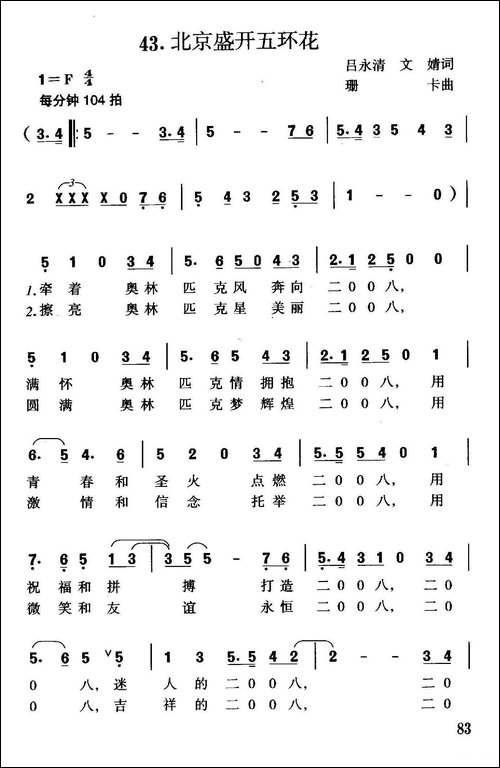 43. 北京盛开五环花
吕永清 文 婧词
1=F 4/4
珊 卡曲
每分钟 104 拍
( 3·4 ‖: 5 - - 3·4 | 5 - - 7 6 | 5·4 3 5 4 3 |
2 X X X X 0 7 6 | 5 4 3 2 5 3 | 1 - - 0 )
5 1 0 3 4 | 5· 6 5 0 4 3 | 2·1 2 5 0 |
1.牵着 奥林 匹克风 奔向 二〇〇八,
2.擦亮 奥林 匹克星 美丽 二〇〇八,
5 1 0 3 4 | 5· 6 5 4 3 | 2·1 2 5 0 1 |
满怀 奥林 匹克情 拥抱 二〇〇八, 用
圆满 奥林 匹克梦 辉煌 二〇〇八, 用
6· 5 4· 6 | 5 2 0 3 4 | 5·5 5 4 0 1 |
青春和 圣火 点燃 二〇〇八, 用
激情和 信念 托举 二〇〇八, 用
7· 6 5 1 3 | 3 5 5 - 7 6 | 5·4 3 1 0 3 4 |
祝福和拼 搏 打造 二〇〇八, 二〇
微笑和友 谊 永恒 二〇〇八, 二〇
5· 6 5 V 5 | 1 3 5·5 4 2 | 2 - - 3 4 |
〇 八,迷 人的二〇〇八, 二〇
〇 八,吉 祥的二〇〇八, 二〇
83